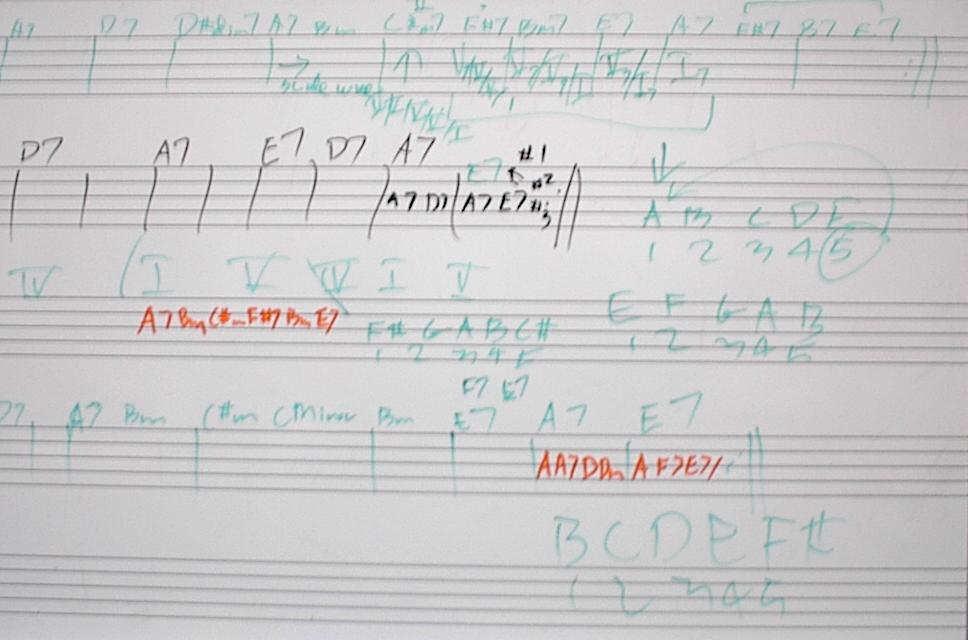 A7 D7 D#dim7 A7 Bm C#m7 F#7 Bm7 E7 A7 F#7 B7 E7
V/V/V/V/I
D7 A7 E7 D7 A7 #1
E7 #2
A7 D7 A7 E7 #3
A B C D E
1 2 3 4 5
IV I V IV I V
A7 Bm C#m F#7 Bm E7
E F G A B
1 2 3 4 5
F# G A B C#
1 2 3 4 5
F7 E7
D7 A7 Bm C#m CMinor Bm E7 A7 E7
A A7 D Dm A F7 E7
B C D E F#
1 2 3 4 5